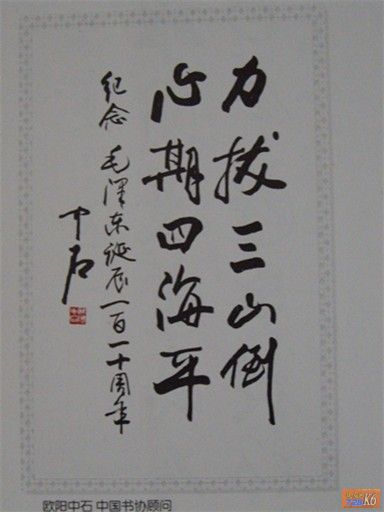 力拔三山倒
心期四海平
纪念 毛泽东诞辰一百一十周年
中石
欧阳中石 中国书协顾问
K6